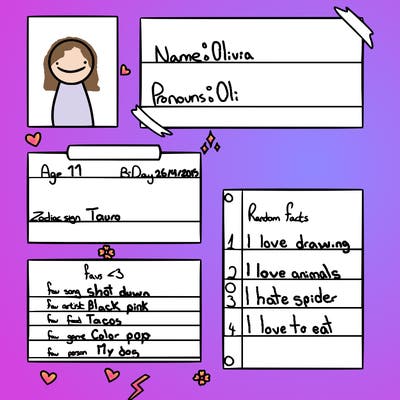 Name: Olivia
Pronouns: Oli
Age 11 B-Day 26/4/2013
Zodiac sign Tauro
favs <3
fav song shot duwn
fav artist Black pink
fav food Tacos
fav game Color pop
fav person My dog
Random facts
1 I love drawing
2 I love animals
3 I hate spider
4 I love to eat